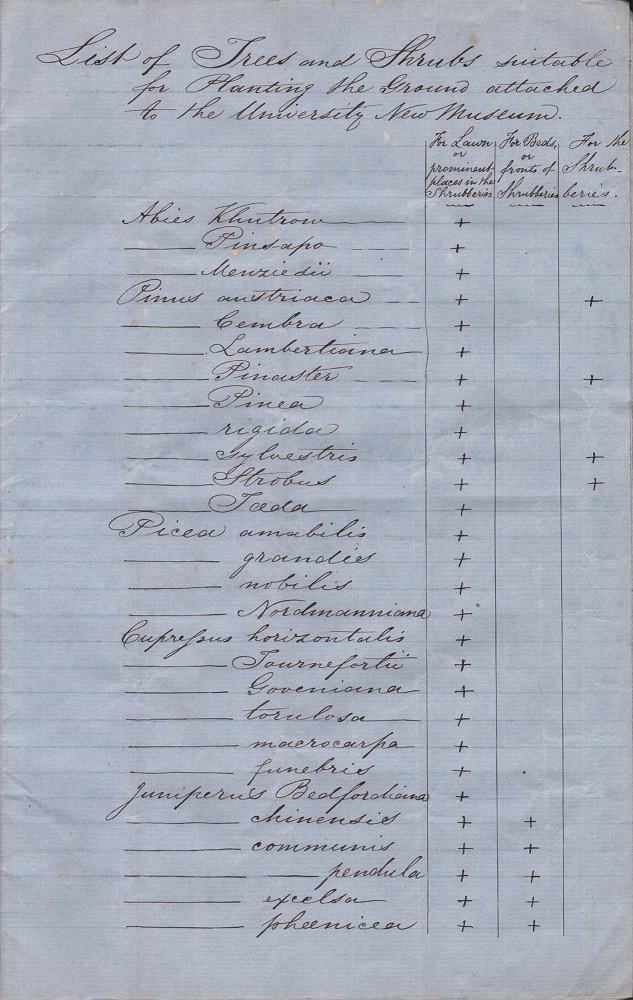 List of Trees and Shrubs suitable
for Planting the Ground attached
to the University New Museum.
For Lawn or prominent places in the Shrubberies
For Beds, or fronts of Shrubberies
For the Shrub-beries.
Abies Khutrow +
—— Pinsapo +
—— Menziesii +
Pinus austriaca + +
—— Cembra +
—— Lambertiana +
—— Pinaster + +
—— Pinea +
—— rigida +
—— Sylvestris + +
—— Strobus + +
—— Tæda +
Picea amabilis +
—— grandies +
—— nobilis +
—— Nordmanniana +
Cupressus horizontalis +
—— Tournefortii +
—— Goveniana +
—— torulosa +
—— macrocarpa +
—— funebris +
Juniperus Bedfordiana +
—— chinensis + +
—— communis + +
—— —— pendula + +
—— excelsa + +
—— phœnicea + +